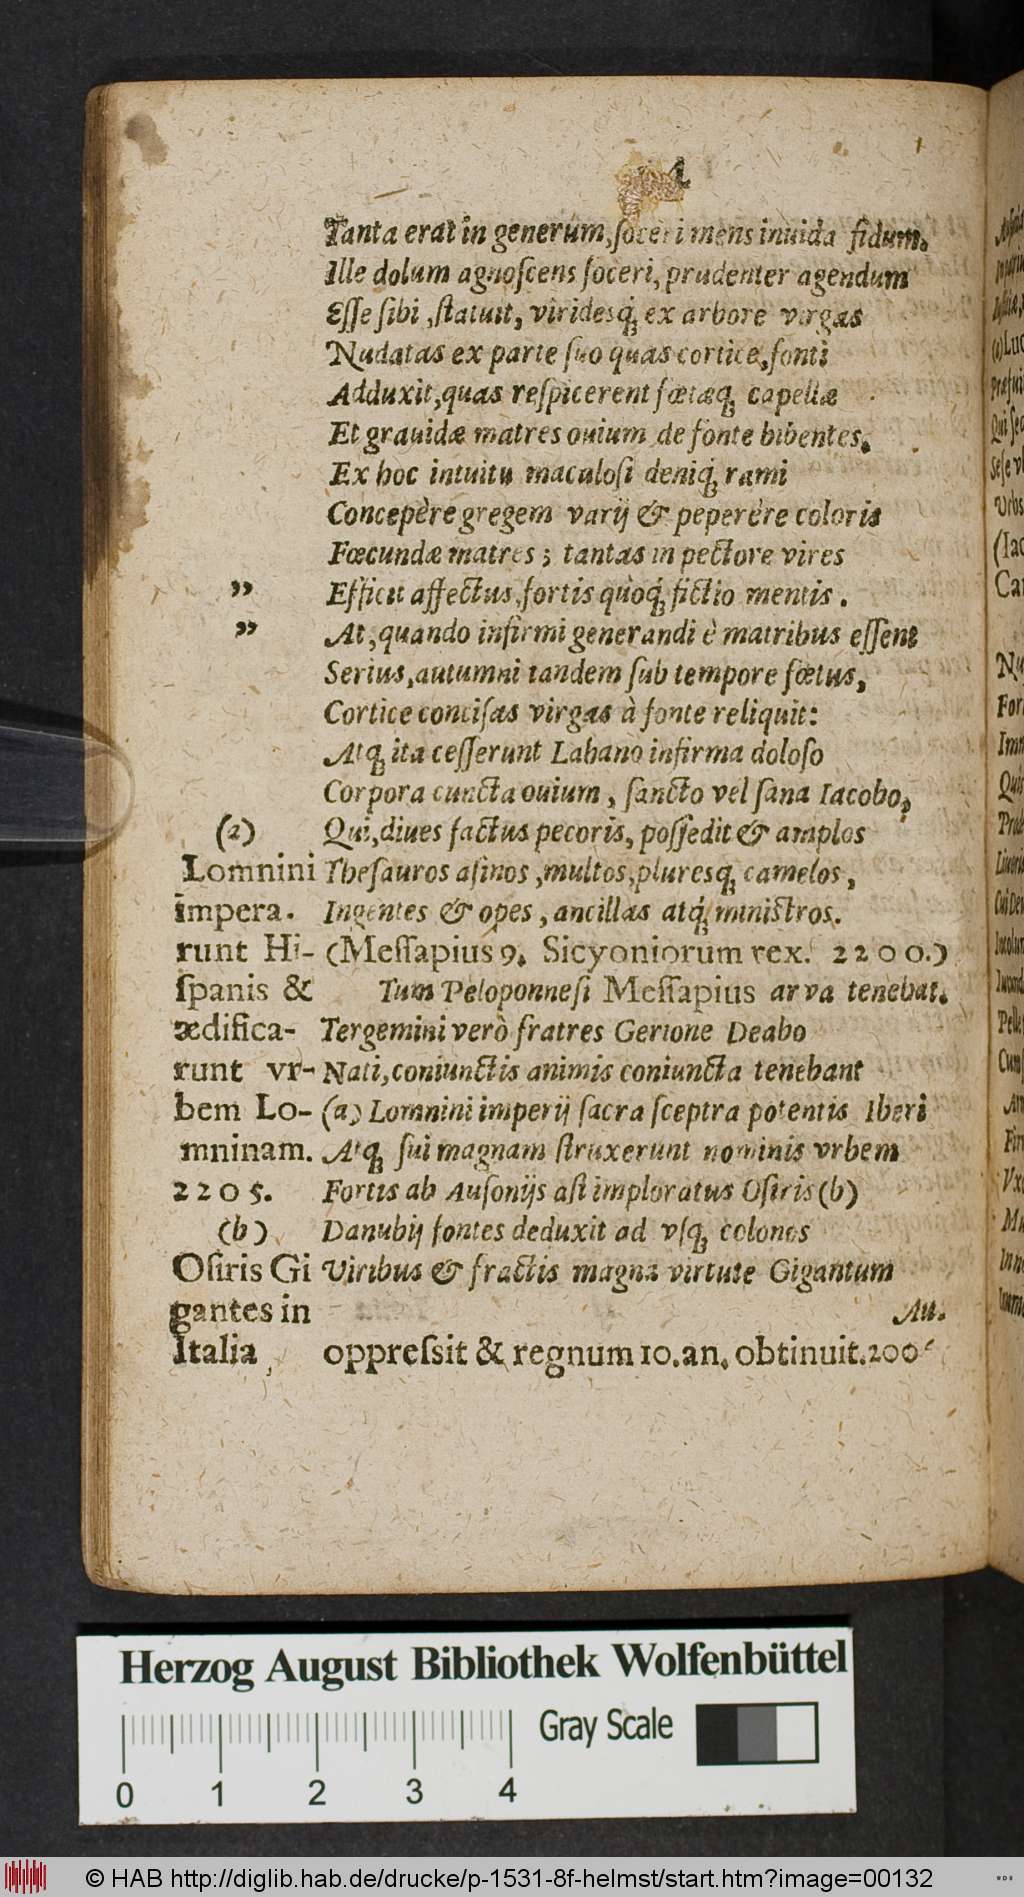 Tanta erat in generum, soceri mens inuida fidum.
Ille dolum agnoscens soceri, prudenter agendum
Esse sibi, statuit, viridesq́; ex arbore virgas
Nudatas ex parte suo quas cortice, fonti
Adduxit, quas respicerent fœtæq́; capellæ
Et grauidæ matres ouium de fonte bibentes.
Ex hoc intuitu maculosi deniq́; rami
Concepère gregem varij & peperére coloris
Fœcundæ matres; tantas in pectore vires
” Efficit affectus, fortis quòq́; fictio mentis.
” At, quando infirmi generandi è matribus essent
Serius, autumni tandem sub tempore fœtus,
Cortice concisas virgas à fonte reliquit:
Atq; ita cesserunt Labano infirma doloso
Corpora cuncta ouium, sancto vel sana Iacobo,
Qui, diues factus pecoris, possedit & amplos
Thesauros asinos, multos, pluresq; camelos,
Ingentes & opes, ancillas atq́; ministros.
(Messapius 9. Sicyoniorum rex. 2200.)
Tum Peloponnesi Messapius arva tenebat.
Tergemini verò fratres Gerione Deabo
Nati, coniunctis animis coniuncta tenebant
(a) Lomnini imperij sacra sceptra potentis Iberi
Atq; sui magnam struxerunt nominis vrbem
Fortis ab Ausonijs ast imploratus Osiris (b)
Danubij fontes deduxit ad vsq; colonos
Viribus & fractis magna virtute Gigantum
Au.
(a)
Lomnini
impera.
runt Hi-
spanis &
ædifica-
runt vr-
bem Lo-
mninam.
2205.
(b)
Osiris Gi
gantes in
Italia oppressit & regnum 10. an. obtinuit. 200
Herzog August Bibliothek Wolfenbüttel
Gray Scale
0 1 2 3 4
© HAB http://diglib.hab.de/drucke/p-1531-8f-helmst/start.htm?image=00132